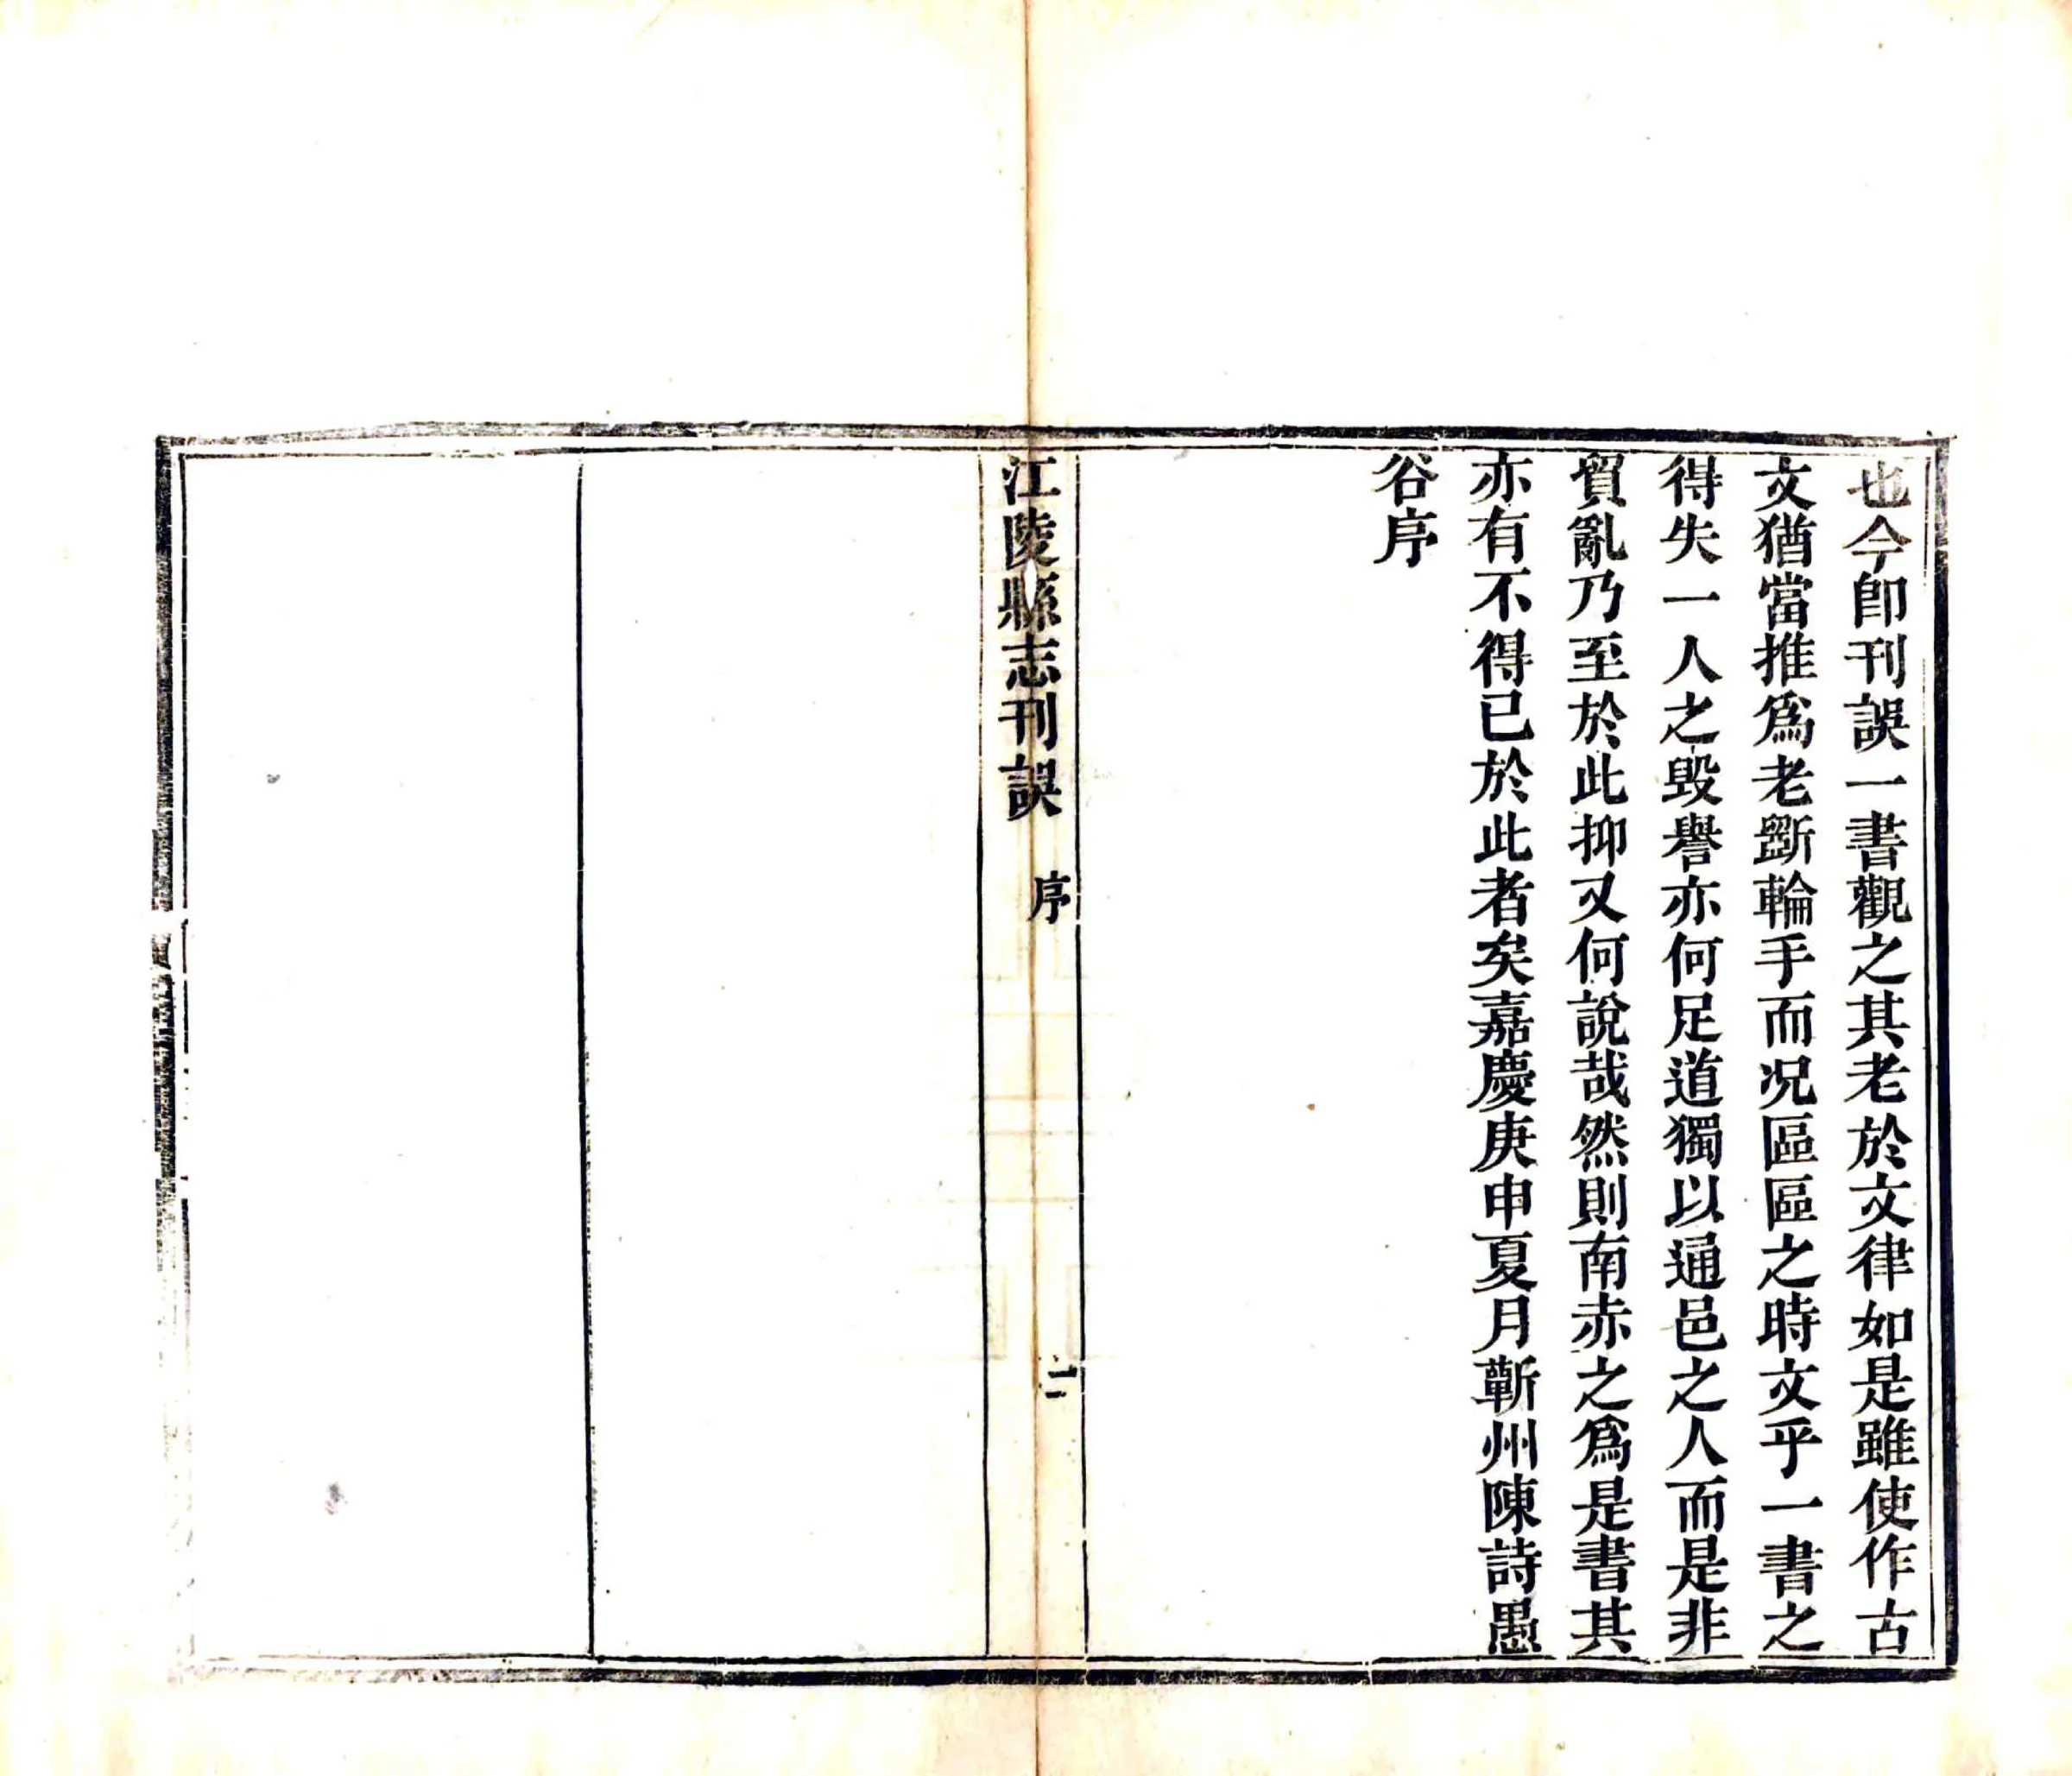 也今卽刊誤一書觀之其老於文律如是雖使作古
文猶當推爲老斲輪手而況區區之時文乎一書之
得失一人之毀譽亦何足道獨以通邑之人而是非
貿亂乃至於此抑又何說哉然則南赤之爲是書其
亦有不得已於此者矣嘉慶庚申夏月蘄州陳詩愚
谷序
江陵縣志刊誤 序 二